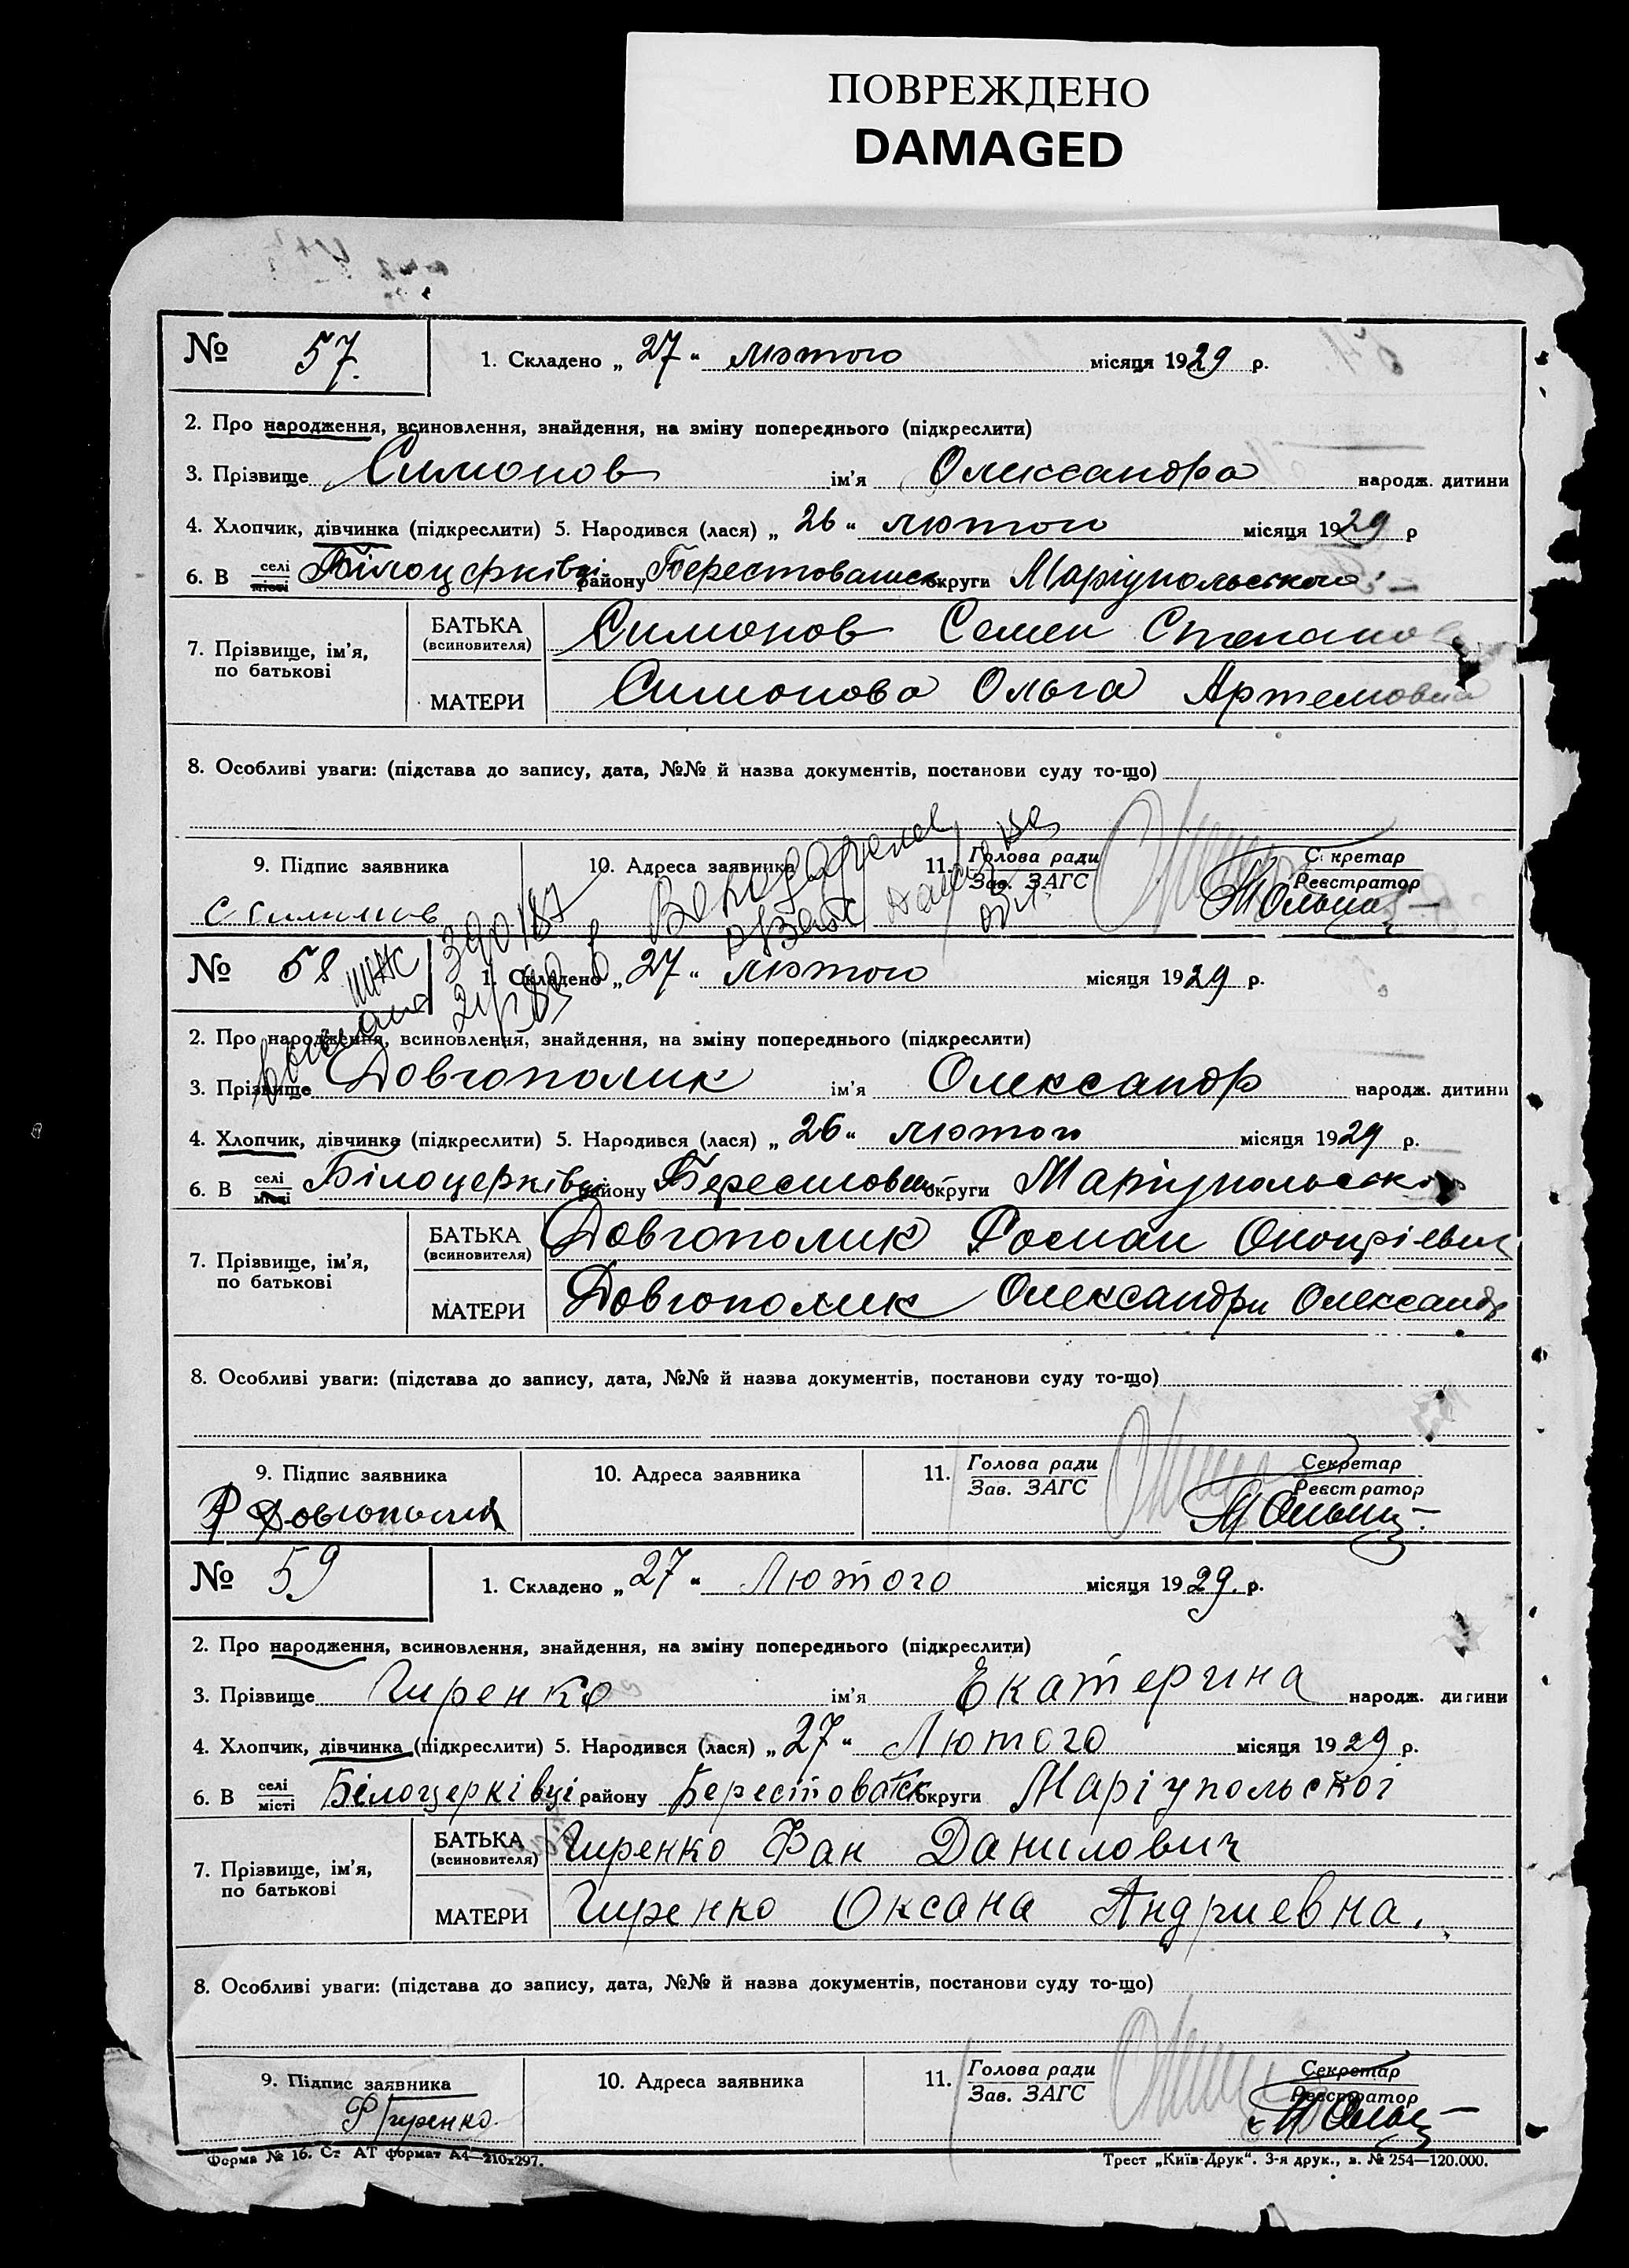 ПОВРЕЖДЕНО
DAMAGED
№ 57. 1. Складено „27“ лютого місяця 1929 р.
2. Про народження, всиновлення, знайдення, на зміну попереднього (підкреслити)
3. Прізвище Симонов ім'я Олександра народж. дитини
4. Хлопчик, дівчинка (підкреслити) 5. Народився (лася) „26“ лютого місяця 1929 р
6. В селі місті Білоцерківці району Берестоваськ округи Маріупольського
7. Прізвище, ім'я, по батькові
БАТЬКА (всиновителя) Симонов Семен Степанов
МАТЕРИ Симонова Ольга Артемовна
8. Особливі уваги: (підстава до запису, дата, №№ й назва документів, постанови суду то-що)
9. Підпис заявника 10. Адреса заявника 11. Голова ради Зав. ЗАГС Секретар Реєстратор
№ 58 1. Складено „27“ лютого місяця 1929 р.
2. Про народження, всиновлення, знайдення, на зміну попереднього (підкреслити)
3. Прізвище Довгополик ім'я Олександр народж. дитини
4. Хлопчик, дівчинка (підкреслити) 5. Народився (лася) „26“ лютого місяця 1929 р.
6. В селі місті Білоцерківці району Берестовськ округи Маріупольсько
7. Прізвище, ім'я, по батькові
БАТЬКА (всиновителя) Довгополик Роман Онопріевич
МАТЕРИ Довгополик Олександри Олександр
8. Особливі уваги: (підстава до запису, дата, №№ й назва документів, постанови суду то-що)
9. Підпис заявника 10. Адреса заявника 11. Голова ради Зав. ЗАГС Секретар Реєстратор
Р Довгополик
№ 59 1. Складено „27“ Лютого місяця 1929. р.
2. Про народження, всиновлення, знайдення, на зміну попереднього (підкреслити)
3. Прізвище Гиренко ім'я Екатерина народж. дитини
4. Хлопчик, дівчинка (підкреслити) 5. Народився (лася) „27“ Лютого місяця 1929 р.
6. В селі місті Білоцерківці району Берестоватск округи Маріупольскої
7. Прізвище, ім'я, по батькові
БАТЬКА (всиновителя) Гиренко Фан Данилович
МАТЕРИ Гиренко Оксана Андриевна.
8. Особливі уваги: (підстава до запису, дата, №№ й назва документів, постанови суду то-що)
9. Підпис заявника 10. Адреса заявника 11. Голова ради Зав. ЗАГС Секретар Реєстратор
Ф Гиренко
Форма № 16. Ст АТ формат А4—210х297. Трест „Київ-Друк“. 3-я друк., з. № 254—120.000.